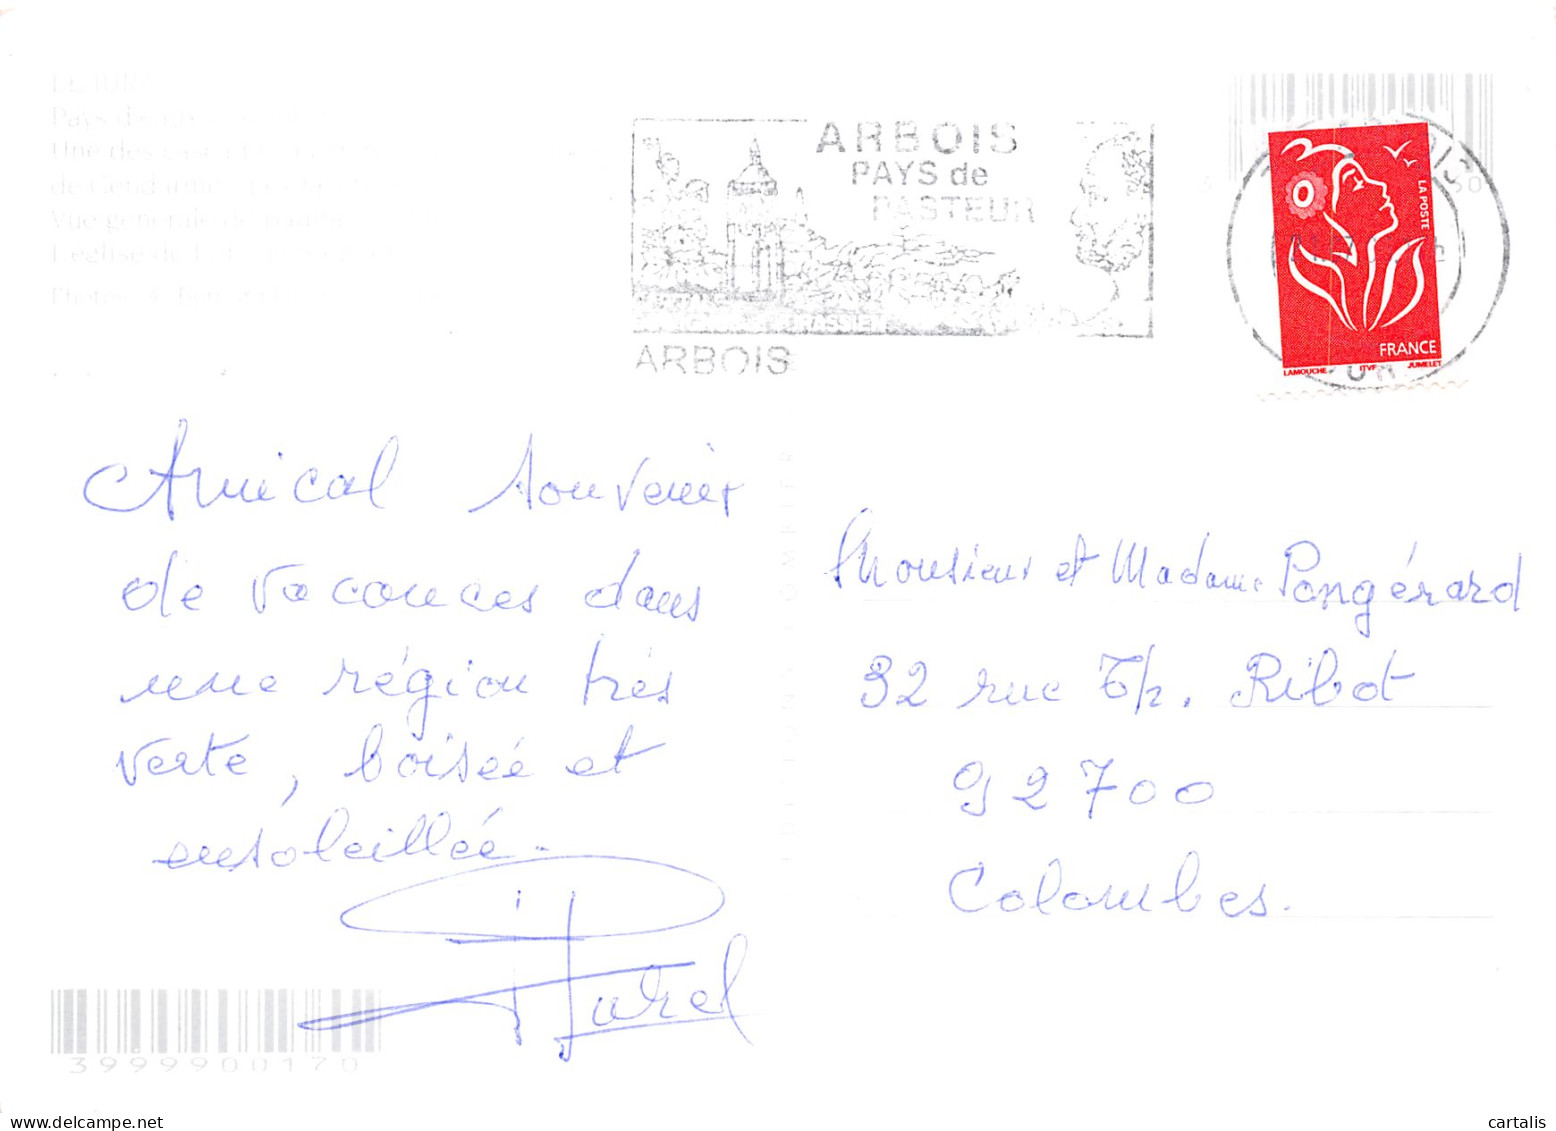 Vue générale de
ARBOIS
PAYS de
PASTEUR
ARBOIS
LA POSTE
FRANCE
LAMOUCHE ITVF JUMELET
Amical souvenir
de vacances dans
une région très
verte, boisée et
ensoleillée.
Monsieur et Madame Pongérard
32 rue Th. Ribot
92700
Colombes.
3999900170
www.cartalis.com
cartalis